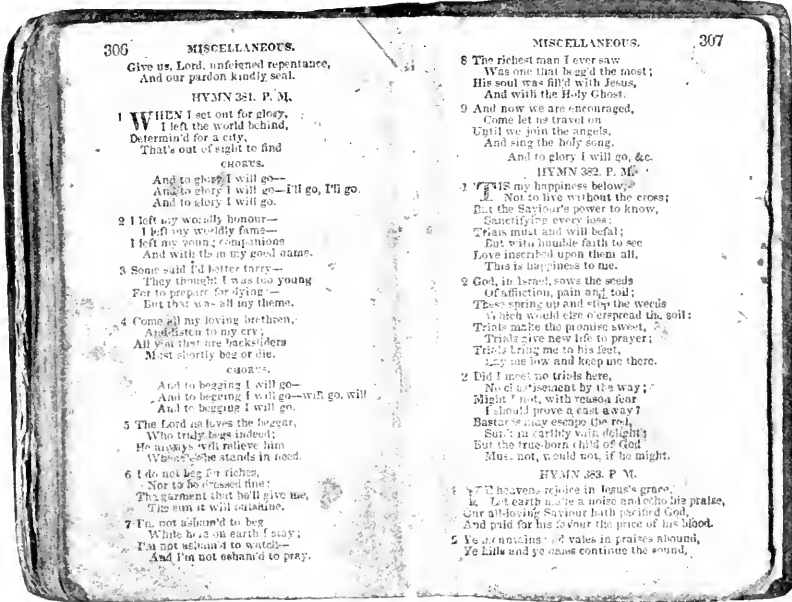 306 MISCELLANEOUS.
Give us, Lord, unfeigned repentance,
And our pardon kindly seal.
HYMN 381. P. M.
1 WHEN I set out for glory,
I left the world behind,
Determin'd for a city,
That's out of sight to find
CHORUS.
And to glory I will go—
And to glory I will go—I'll go, I'll go.
And to glory I will go.
2 I left my worldly honour—
I left my worldly fame—
I left my young companions
And with them my good name.
3 Some said I'd better tarry—
They thought I was too young
For to prepare for dying—
But that was all my theme.
4 Come all my loving brethren,
And listen to my cry;
All you that are backsliders
Must shortly beg or die.
CHORUS.
And to begging I will go—
And to begging I will go—will go, will
And to begging I will go.
5 The Lord he loves the beggar,
Who truly begs indeed;
He always will relieve him
Whene'er he stands in need.
6 I do not beg for riches,
Nor to be dressed fine;
The garment that he'll give me,
The sun it will outshine.
7 I'm not asham'd to beg
While here on earth I stay;
I'm not asham'd to watch—
And I'm not asham'd to pray.
MISCELLANEOUS. 307
8 The richest man I ever saw
Was one that begg'd the most;
His soul was fill'd with Jesus,
And with the Holy Ghost.
9 And now we are encouraged,
Come let us travel on
Until we join the angels,
And sing the holy song.
And to glory I will go, &c.
HYMN 382. P. M.
1 'TIS my happiness below,
Not to live without the cross;
But the Saviour's power to know,
Sanctifying every loss:
Trials must and will befal;
But with humble faith to see
Love inscribed upon them all,
This is happiness to me.
2 God, in Israel, sows the seeds
Of affliction, pain and toil;
These spring up and stop the weeds
Which would else o'erspread the soil:
Trials make the promise sweet,
Trials give new life to prayer;
Trials bring me to his feet,
Lay me low and keep me there.
2 Did I meet no trials here,
No chastisement by the way;
Might I not, with reason fear
I should prove a cast away?
Bastards may escape the rod,
Sunk in earthly vain delight;
But the true-born child of God
Must not, would not, if he might.
HYMN 383. P. M.
YE heavens rejoice in Jesus's grace,
Let earth make a noise and echo his praise,
Our all-loving Saviour hath pacified God,
And paid for his favour the price of his blood.
2 Ye mountains and vales in praises abound,
Ye hills and ye dales continue the sound,